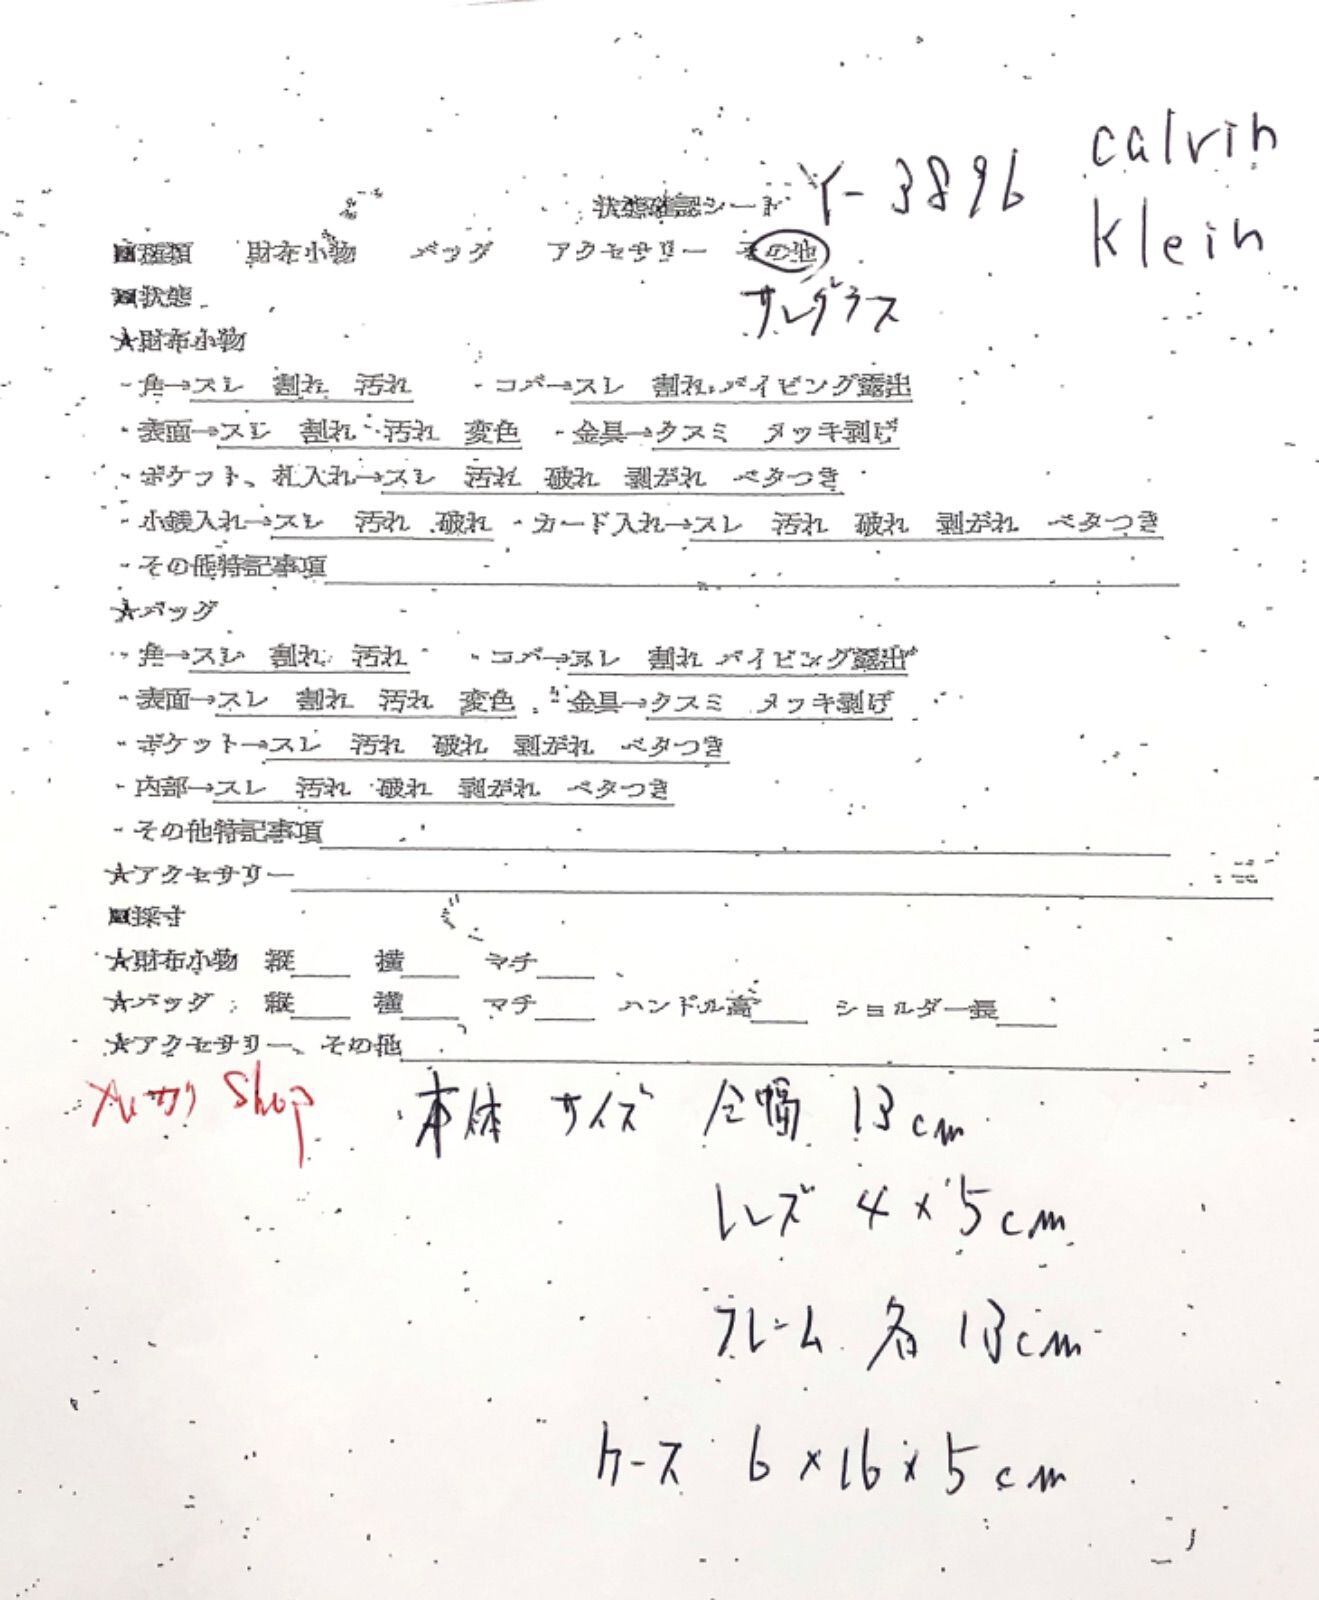 calvin
状態確認シート Y-3896 klein
■種類 財布小物 バッグ アクセサリー その他
■状態 サングラス
★財布小物
・角→スレ 割れ 汚れ ・コバ→スレ 割れ パイピング露出
・表面→スレ 割れ 汚れ 変色 ・金具→クスミ メッキ剥げ
・ポケット、札入れ→スレ 汚れ 破れ 剥がれ ベタつき
・小銭入れ→スレ 汚れ 破れ ・カード入れ→スレ 汚れ 破れ 剥がれ ベタつき
・その他特記事項
★バッグ
・角→スレ 割れ 汚れ ・コバ→スレ 割れ パイピング露出
・表面→スレ 割れ 汚れ 変色 ・金具→クスミ メッキ剥げ
・ポケット→スレ 汚れ 破れ 剥がれ ベタつき
・内部→スレ 汚れ 破れ 剥がれ ベタつき
・その他特記事項
★アクセサリー
■採寸
★財布小物 縦 横 マチ
★バッグ 縦 横 マチ ハンドル高 ショルダー長
★アクセサリー、その他
メルカリ Shop 本体 サイズ 全幅 13cm
レンズ 4×5cm
フレーム 各 13cm
ケース 6×16×5cm